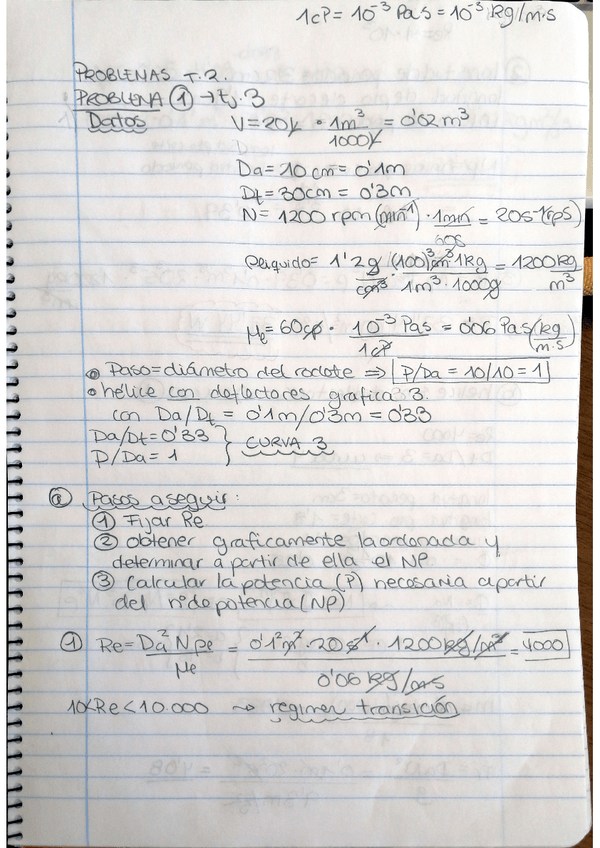 1cP = 10⁻³ Pas = 10⁻³ kg/m·s
PROBLEMAS T.2.
PROBLEMA ① → tj. 3
Datos V = 20 L · 1m³/1000L = 0'02 m³
Da = 10 cm = 0'1m
Dt = 30cm = 0'3m
N = 1200 rpm (min⁻¹) · 1min/60s = 20s⁻¹ (rps)
ρliquido = 1'2g/cm³ · (100)³cm³·1kg/1m³·1000g = 1200 kg/m³
μe = 60cp · 10⁻³ Pas/1cP = 0'06 Pas (kg/m·s)
• Paso = diámetro del rodete ⇒ P/Da = 10/10 = 1
• hélice con deflectores grafica 3.
con Da/Dt = 0'1m/0'3m = 0'33
Da/Dt = 0'33
P/Da = 1 } CURVA 3
ⓐ Pasos a seguir:
① Fijar Re
② obtener graficamente la ordenada y
determinar a partir de ella el NP
③ Calcular la potencia (P) necesaria a partir
del nº de potencia (NP)
① Re = Da² N ρe/μe = 0'1²m²·20s⁻¹·1200kg/m³/0'06 kg/ms = 4000
10<Re<10.000 ⇝ regimen transición